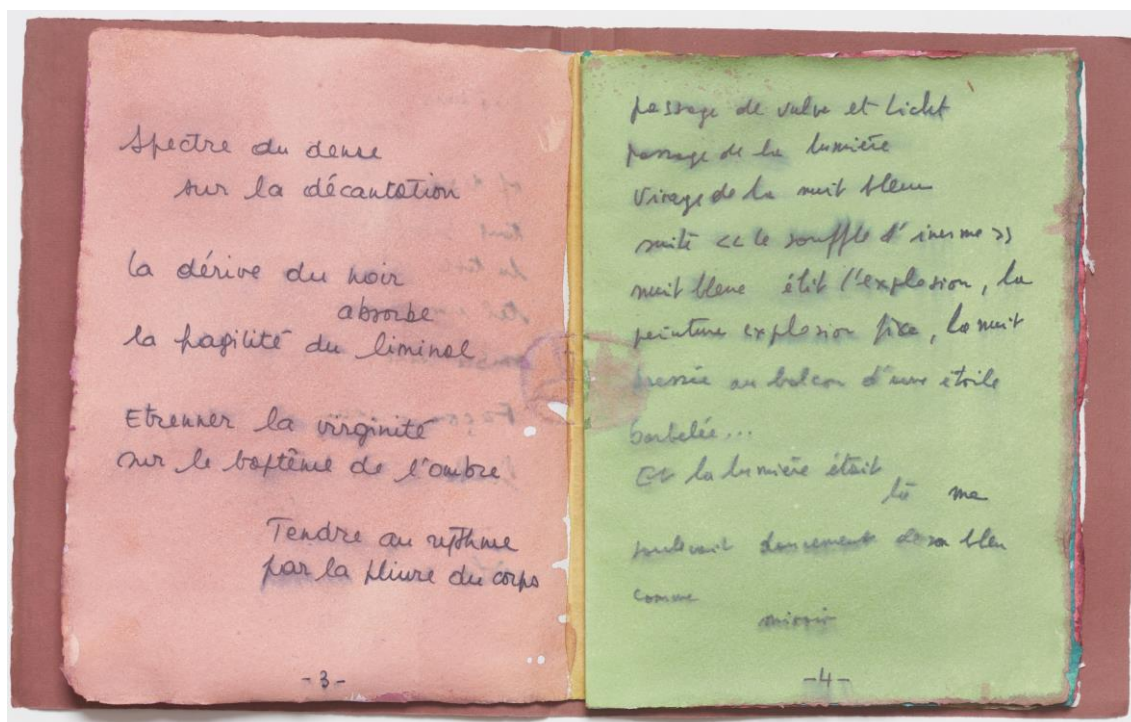 Spectre du dense
sur la décantation
la dérive du noir
absorbe
la fragilité du liminal
Etrenner la virginité
sur le baptême de l'ombre
Tendre au rythme
par la pliure du corps
-3-
passage de valve et Licht
passage de la lumière
Virage de la nuit bleue
suite << le souffle d' >>
nuit bleue était l'explosion, la
peinture explosion fixe, la nuit
dressée au balcon d'une étoile
barbelée...
Et la lumière était
là me
soulevait doucement de son bleu
comme
miroir
-4-